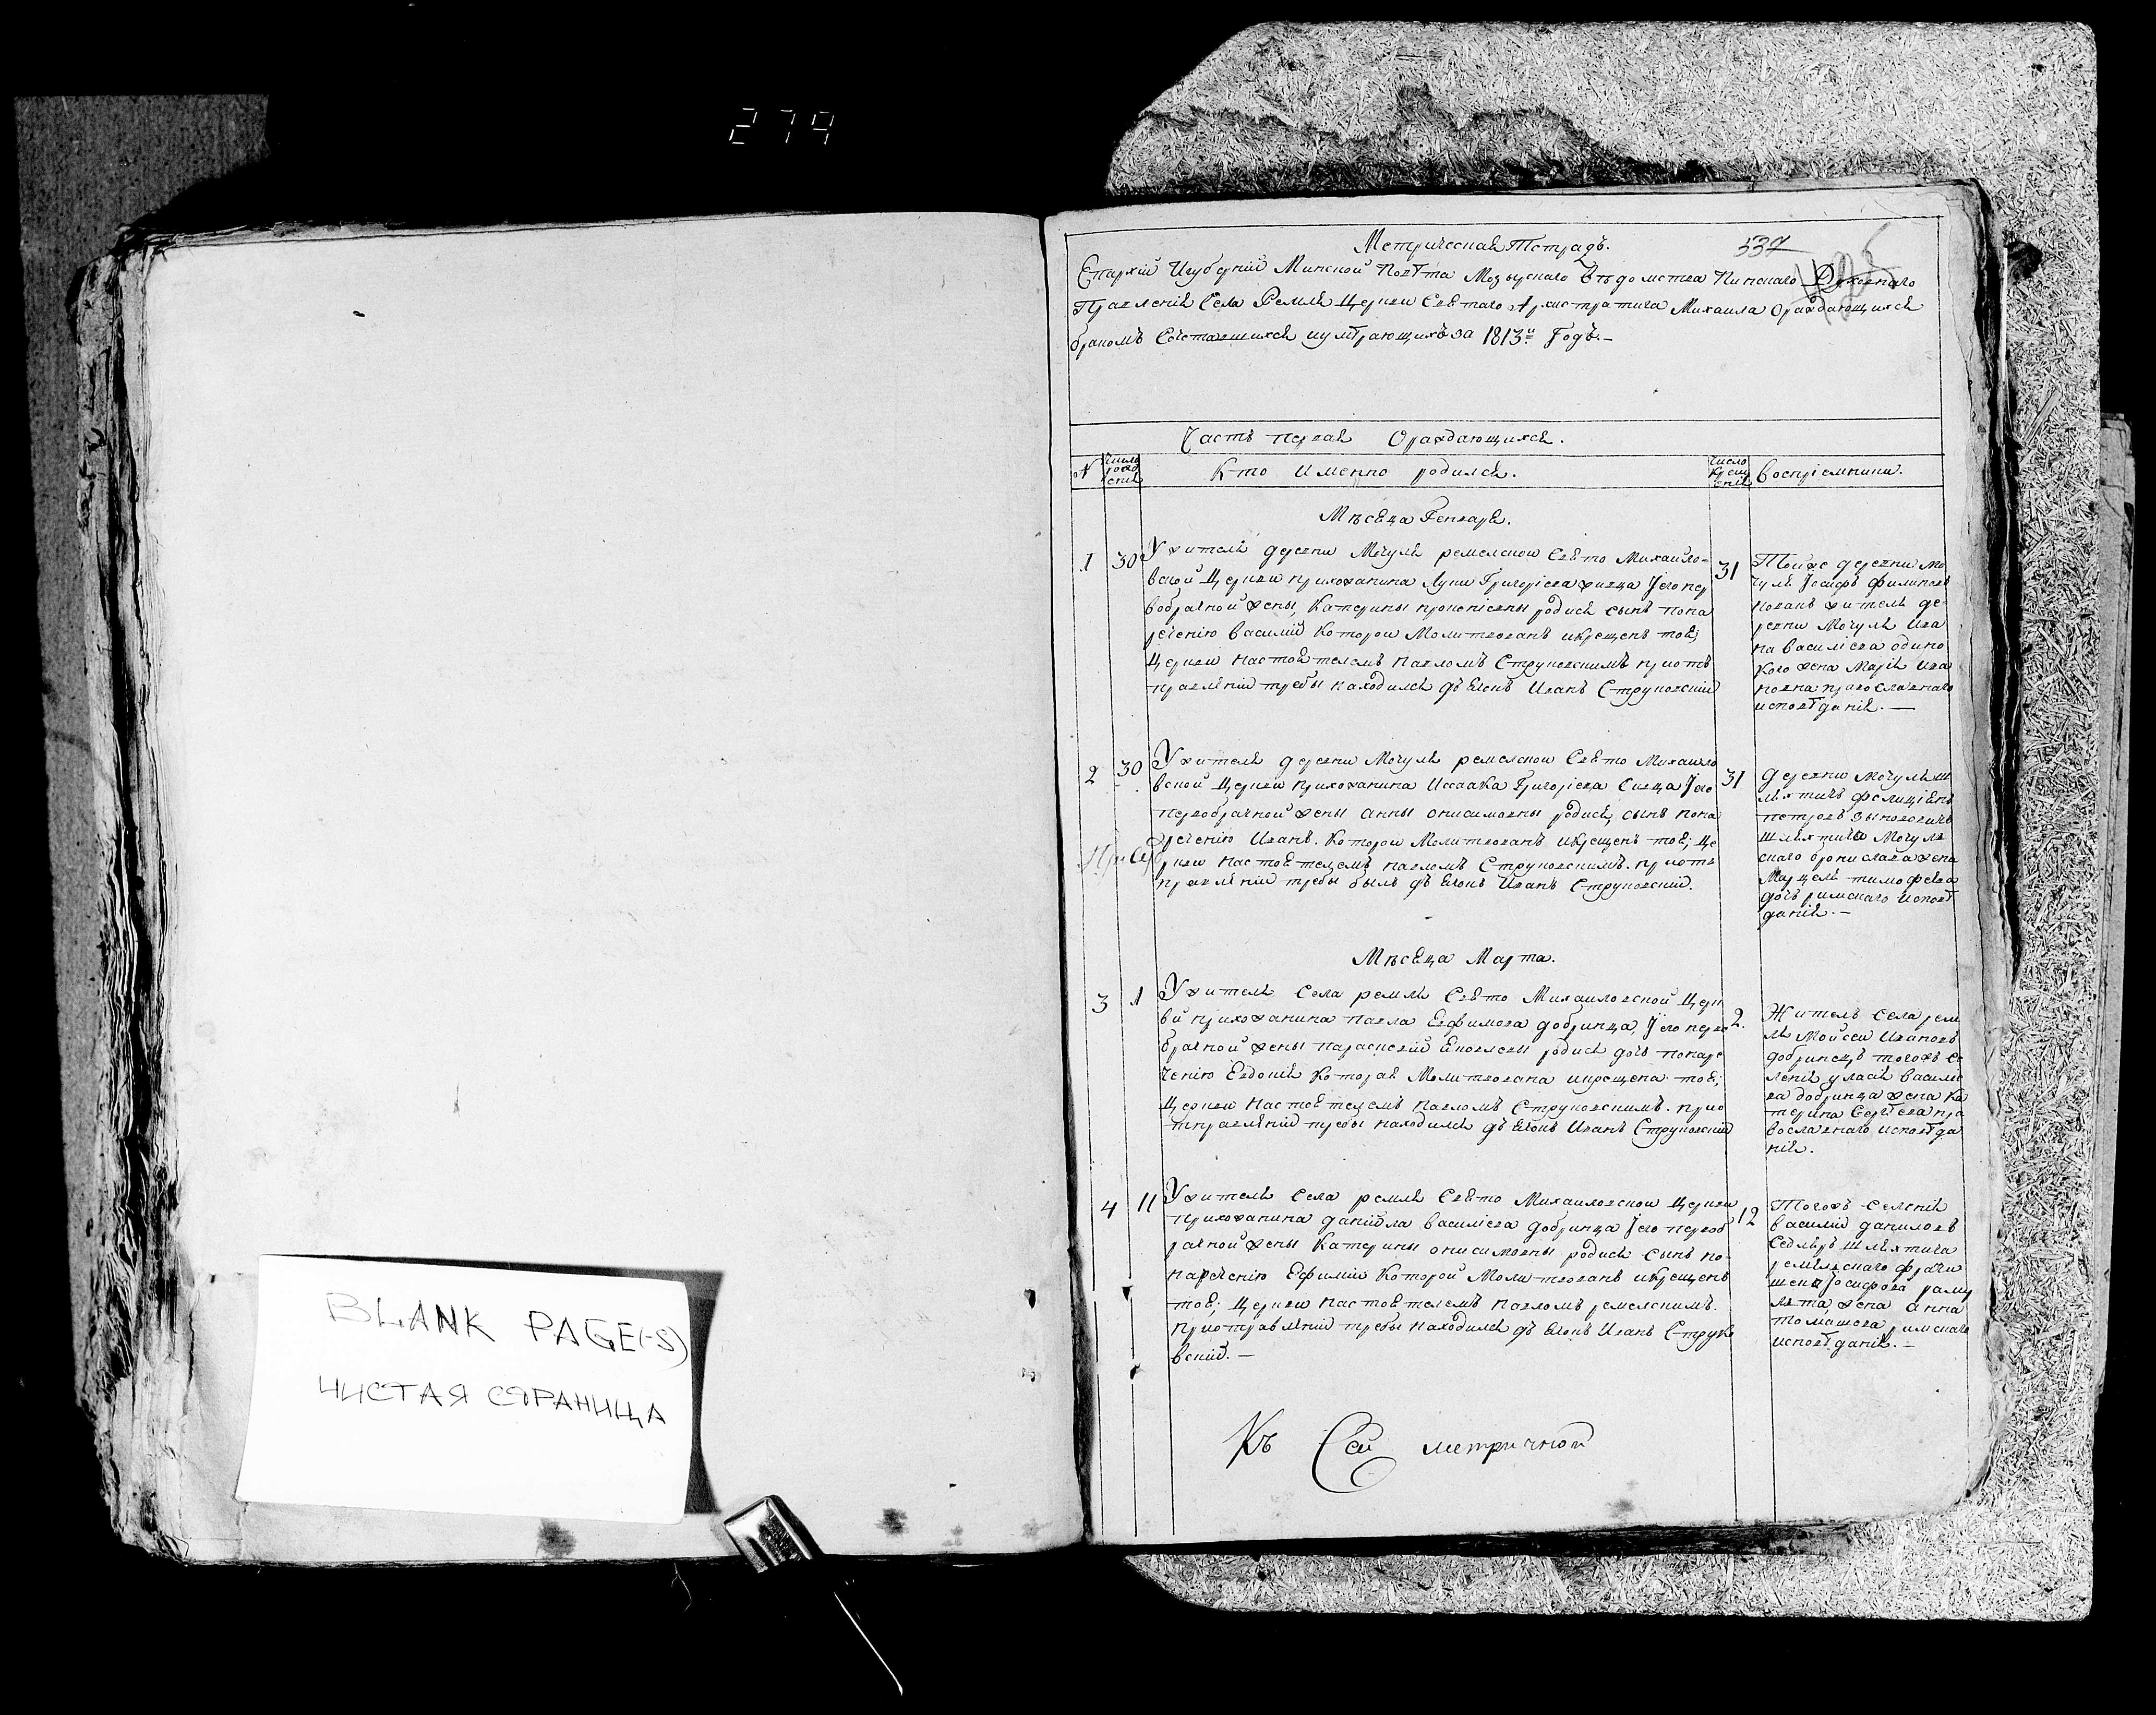 279
BLANK PAGE(-S)
ЧИСТАЯ СТРАНИЦА
Метрическая Тетрадь.
537
Епархіи Игуберніи Минской Повѣта Мозырскаго Вѣдомства Пинскаго Духовнаго
Правленія Села Ремля Церкви Святаго Архистратига Михаила Ораждающихся
бракомъ Сочетавшихся иумѣрающихъ за 1813й Годъ.
Часть первая Ораждающихся.
N
Число рожденія
К-то Именно родился.
Число Крещенія
Воспріемники.
Мѣсяца Генваря.
1 30 Ужителя деревни Мочуля ремелской Свято Михайло-
вской Церкви прихожанина Луки Григоріева Его пер
вобрачной жены, Катерины родися сынъ пона
реченію Василій Которой Молитвованъ икрещенъ тоя;
Церкви Настоятелемъ Павломъ Струковскимъ приотъ
правленіи требы находился дьячокъ Иванъ Струковскій
31 Тойже деревни мо
чуля Іосифъ филипов
житель де
ревни Мочуля Ива
на Василіева одино
кого жена Марія Ива
нова православнаго
исповѣданія. —
2 30 Ужителя деревни Мочуля ремелской Свято Михаило
вской Церкви прихожанина Исаака Григоріева Его
первобрачной жены Анны онисимовны родися, сынъ пона
реченію Иванъ. Которой Молитвованъ икрещенъ тоя; Це
ркви Настоятелемъ павломъ Струковскимъ. приотъ
правленіи требы былъ дьячокъ Иванъ Струковскій.
31 деревни Мочуля ш
ляхтичъ фелиціянъ
петровъ
шляхтича Мочуль
скаго бронислава жена
тимофеева
дочь римскаго исповѣ
данія. —
Мѣсяца Марта.
3 1 Ужителя Села ремля Свято Михаиловской Церк
ви прихожанина павла Евфимова добринца, Его перво
брачной жены параскевіи родися дочь понаре
ченію Евдокія Которая Молитвована икрещена тоя;
Церкви Настоятелемъ павломъ Струковскимъ. прио
тправленіи требы находился дьячокъ Иванъ Струковскій
2. Житель Села рем
ля Мойсей Ивановъ
добринецъ тогожъ се
ленія уласа Василіе
ва добринца жена Ка
терина Сергѣева пра
вославнаго исповѣда
нія.
4 11 Ужителя Села ремля Свято Михаиловской Церкви
прихожанина даніила Василіева добринца Его первоб
рачной жены Катерины онисимовны родися Сынъ по-
наречению Ефимій Которой Молитвованъ икрещенъ
тоя; Церкви Настоятелемъ павломъ ремелскимъ.
приотправленіи требы находился дьячокъ Иванъ Струко
вскій. —
12 Тогожъ Селенія
Василій даниловъ
шляхтича
ремельскаго
Іосифова
жена анна
томашова римскаго
исповѣданія. —
Къ Сей метричной